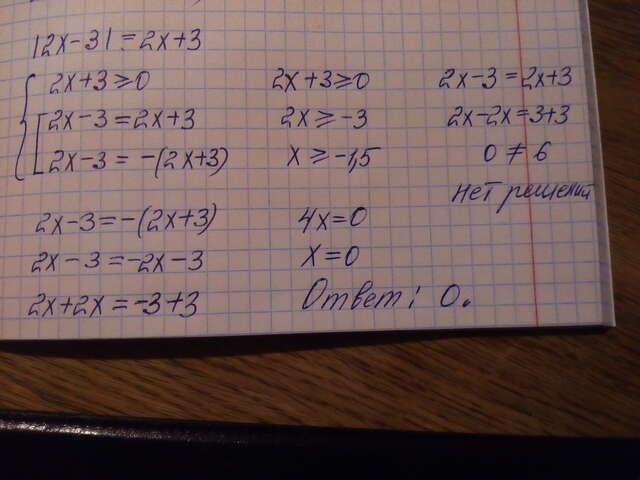 |2x-3| = 2x+3
2x+3≥0
2x-3=2x+3
2x-3=-(2x+3)
2x+3≥0
2x≥-3
x≥-1,5
2x-3=2x+3
2x-2x=3+3
0≠6
нет решений
2x-3=-(2x+3)
2x-3=-2x-3
2x+2x=-3+3
4x=0
x=0
Ответ: 0.